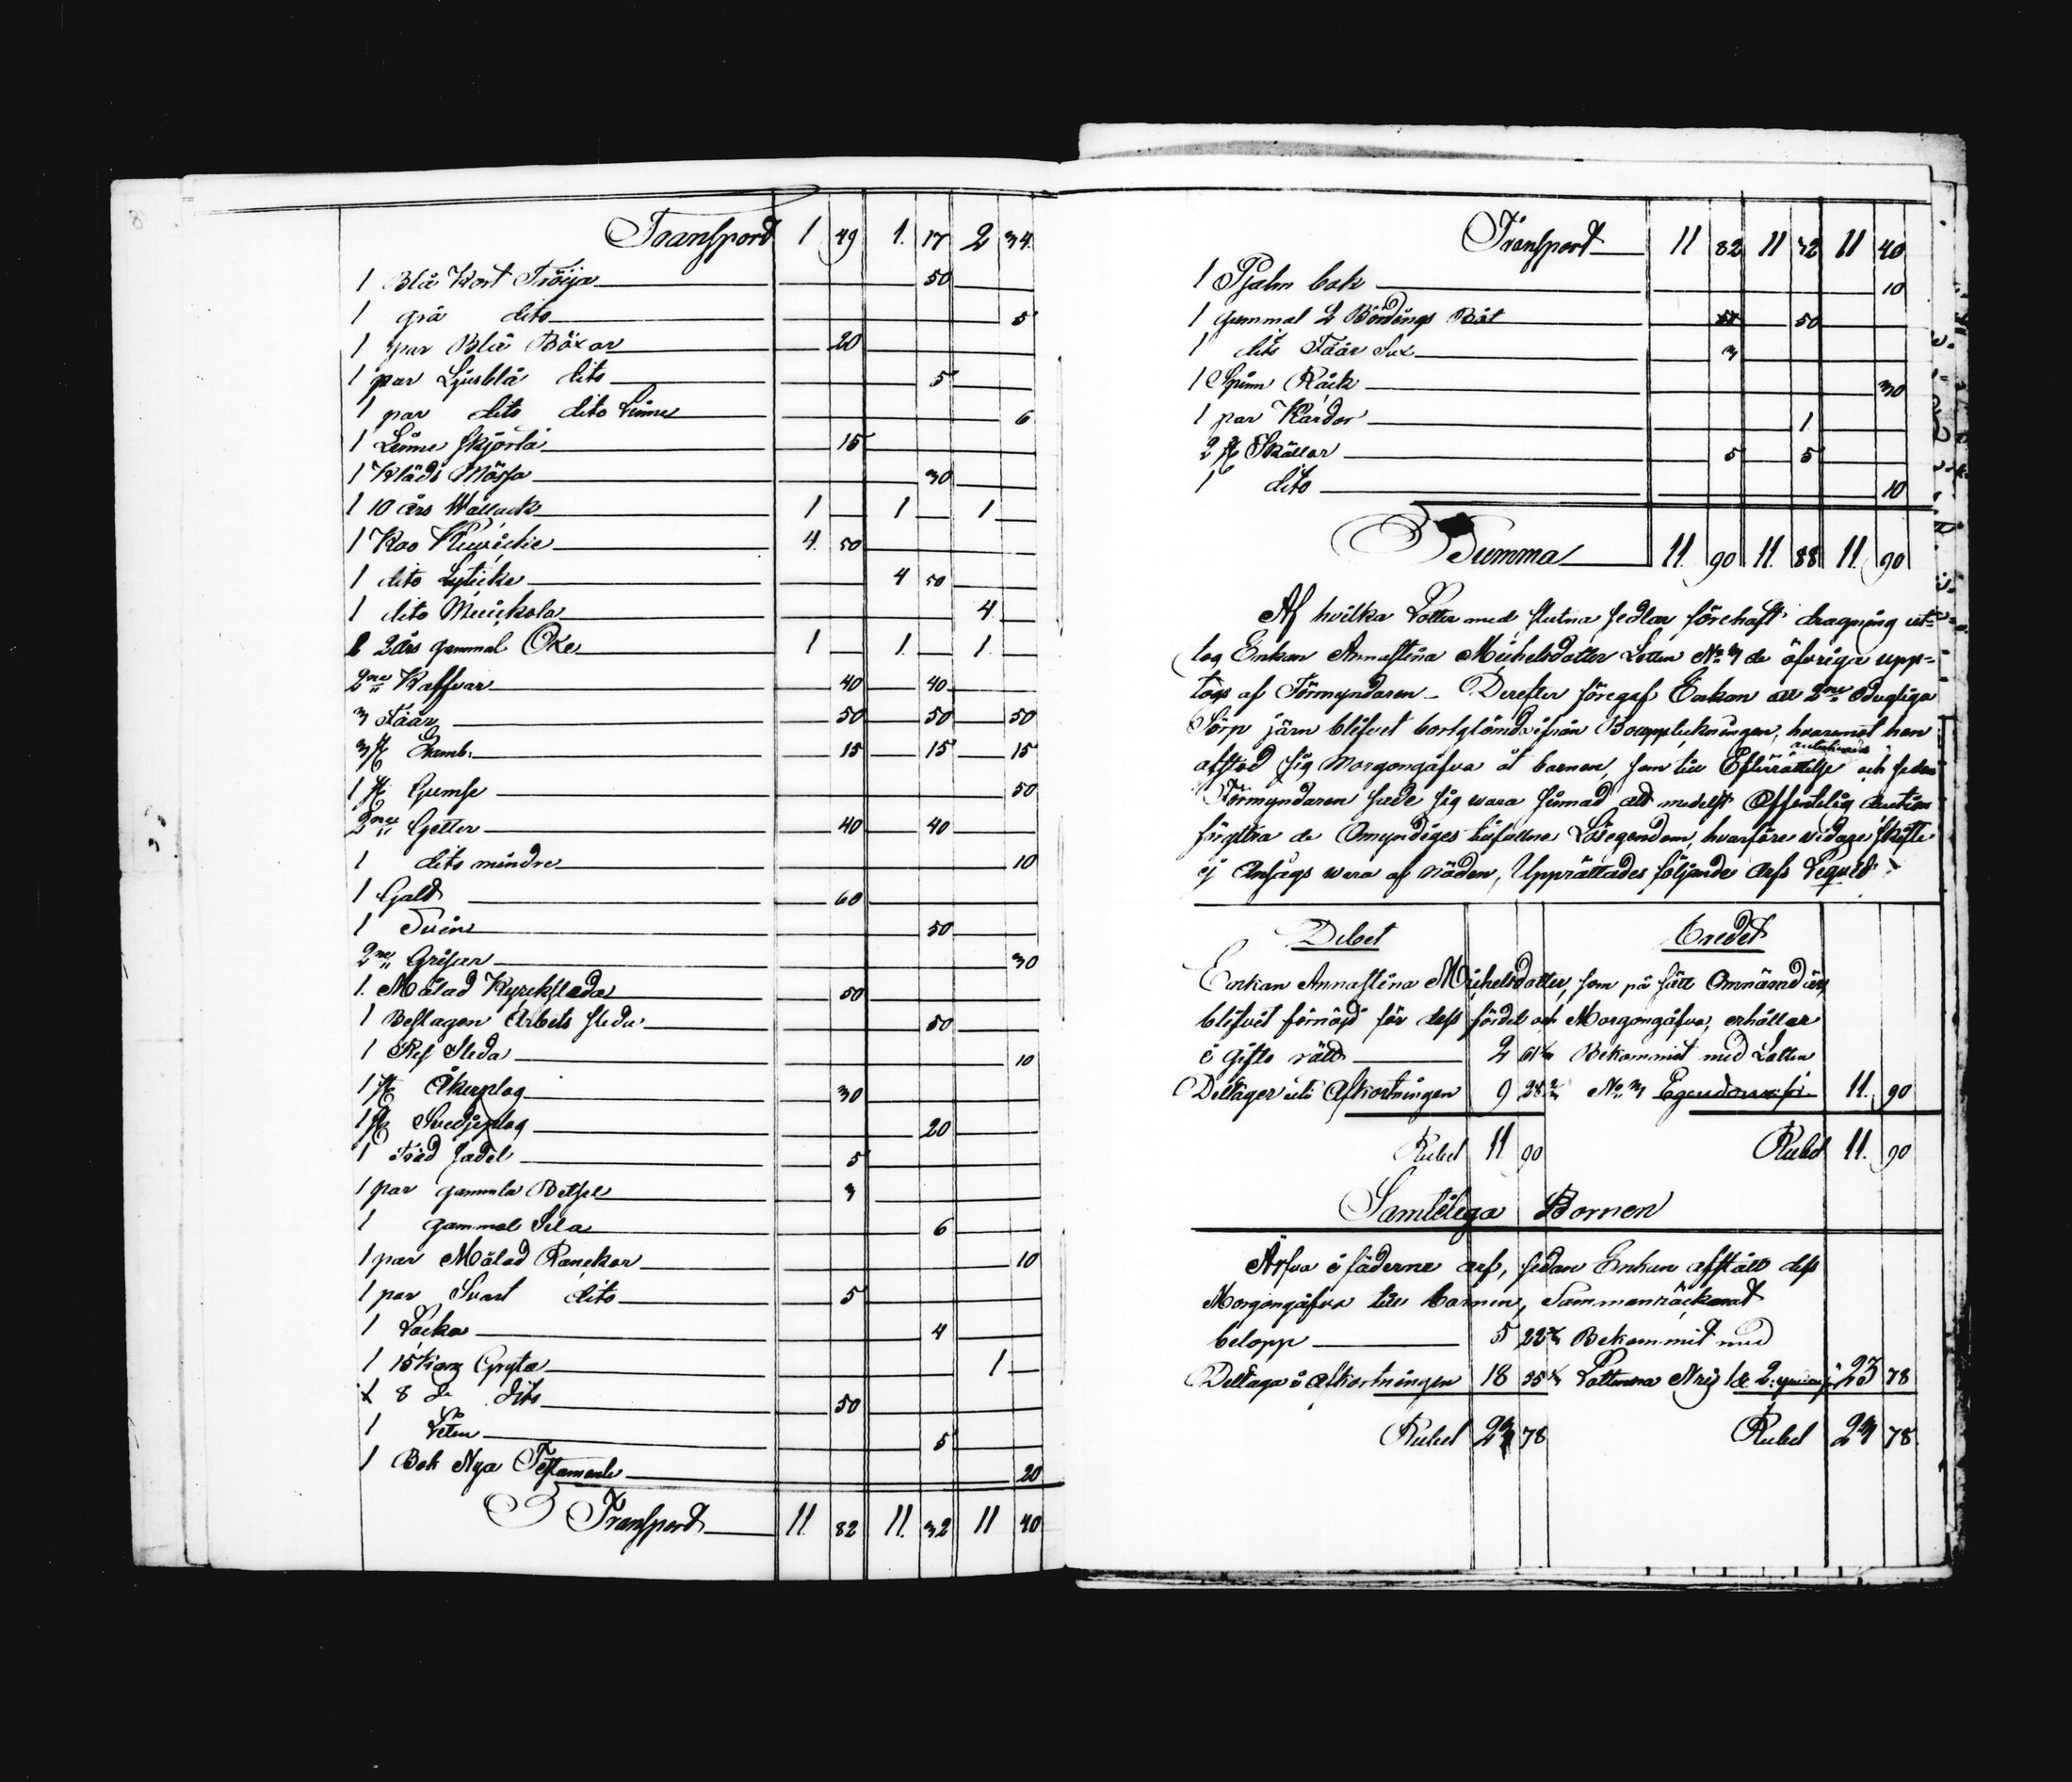 Transport 1 49 1. 17 2 34.
1 Blå Kort Tröija 50
1 grå dito 5
1 par Blå Böxor 20
1 par Ljusblå dito 5
1 par dito dito Linne 6
1 Linne Skjorta 15
1 Kläds Mössa 30
1 10 års Wallack 1 1 1
1 Koo 4. 50
1 dito Lyticke 4 50
1 dito Muickola 4
1 2 års gammal Oxe 1 1. 1.
2ne Kalfvar 40 40
3 Fåår 50 50 50
3 st Lamb. 15 15 15
1 st Gumse 50
2ne Getter 40 40
1 dito mindre 10
1 Galt 60
1 Svin 50
2ne Grisar 30
1. Målad Kyrkslæda 50
1 Beslagen Arbets slæda 50
1 Ref Slæda 10
1 st Åkerplog 30
1 st Svedjeplog 20
1 Träd sadel 5
1 par gammla Betsel 3
1 gammal Sela 6
1 par Målad Ranckor 10
1 par Svart dito 5
1 Låcka 4
1 15 Kanz Gryta 1
1 8 do dito 50
1 5
1 Bok Nya Testamente 20
Transport 11. 82 11. 32 11 40
Transport 11 82 11 32 11 40
1 Psalm bok 10
1 gammal 2 Bördings Båt 50
1 dito Fåår Sax 3
1 Spinn Råck 30
1 par Kardor 1
2 st Skållar 5 5
1 dito 10
Summa 11. 90 11. 88 11. 90
Af hvilka Lotter med slutna sedlar förehaft dragning ut=
tog Enkan Annastina Michelsdotter Lotten No 3 de öfriga upp=
togs af Förmyndaren – Derefter föregaf Enkan att 2ne odugliga
Sörp järn blifvit bortglömda ifrån Bouppteckningen, hvaremot hon
afstod sig Morgongåfva åt barnen, som till Efterrättelse antecknades och sedan
Förmyndaren sade sig wara sinnad att medelst Offentelig Auction
förytra de Omyndiges tilfallne Lösegendom, hvarföre vidare skifte
ej Ansågs wara af nöden, Upprättades följande Arfs Liqvid
Debet Credet
Enkan Annastina Michelsdotter, som på sätt Omnämd är,
blifvit förnöjd för dess fördel och Morgongåfva, erhåller
i gifto rätt 2 61 Bekommit med Lotten
Deltager uti Afkortningen 9 28 No 3 Egendom för 11. 90
Rubel 11 90 Rubel 11. 90
Samtelega Barnen
Ärfva i fäderne arf, sedan Enkan afstått dess
Morgongåfva till barnen, Sammanräcknat
belopp 5 22 Bekommit med
Deltaga i Afkortningen 18 55 Lotterna 1 & 2 23 78
Rubel 23 78 Rubel 23 78.